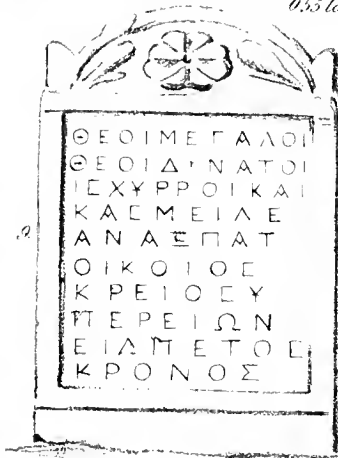 ΘΕΟΙΜΕΓΑΛΟΙ
ΘΕΟΙΔΥΝΑΤΟΙ
ΙΣΧΥΡΡΟΙΚΑΙ
ΚΑΣΜΕΙΛΕ
ΑΝΑΞΠΑΤ
ΟΙΚΟΙΟΣ
ΚΡΕΙΟΣΥ
ΠΕΡΕΙΩΝ
ΕΙΑΠΕΤΟΣ
ΚΡΟΝΟΣ